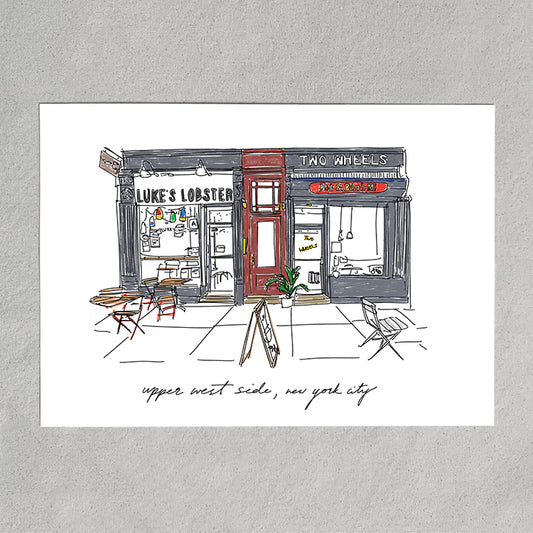 TWO WHEELS
LUKE'S LOBSTER
TWO
WHEELS
upper west side, new york city